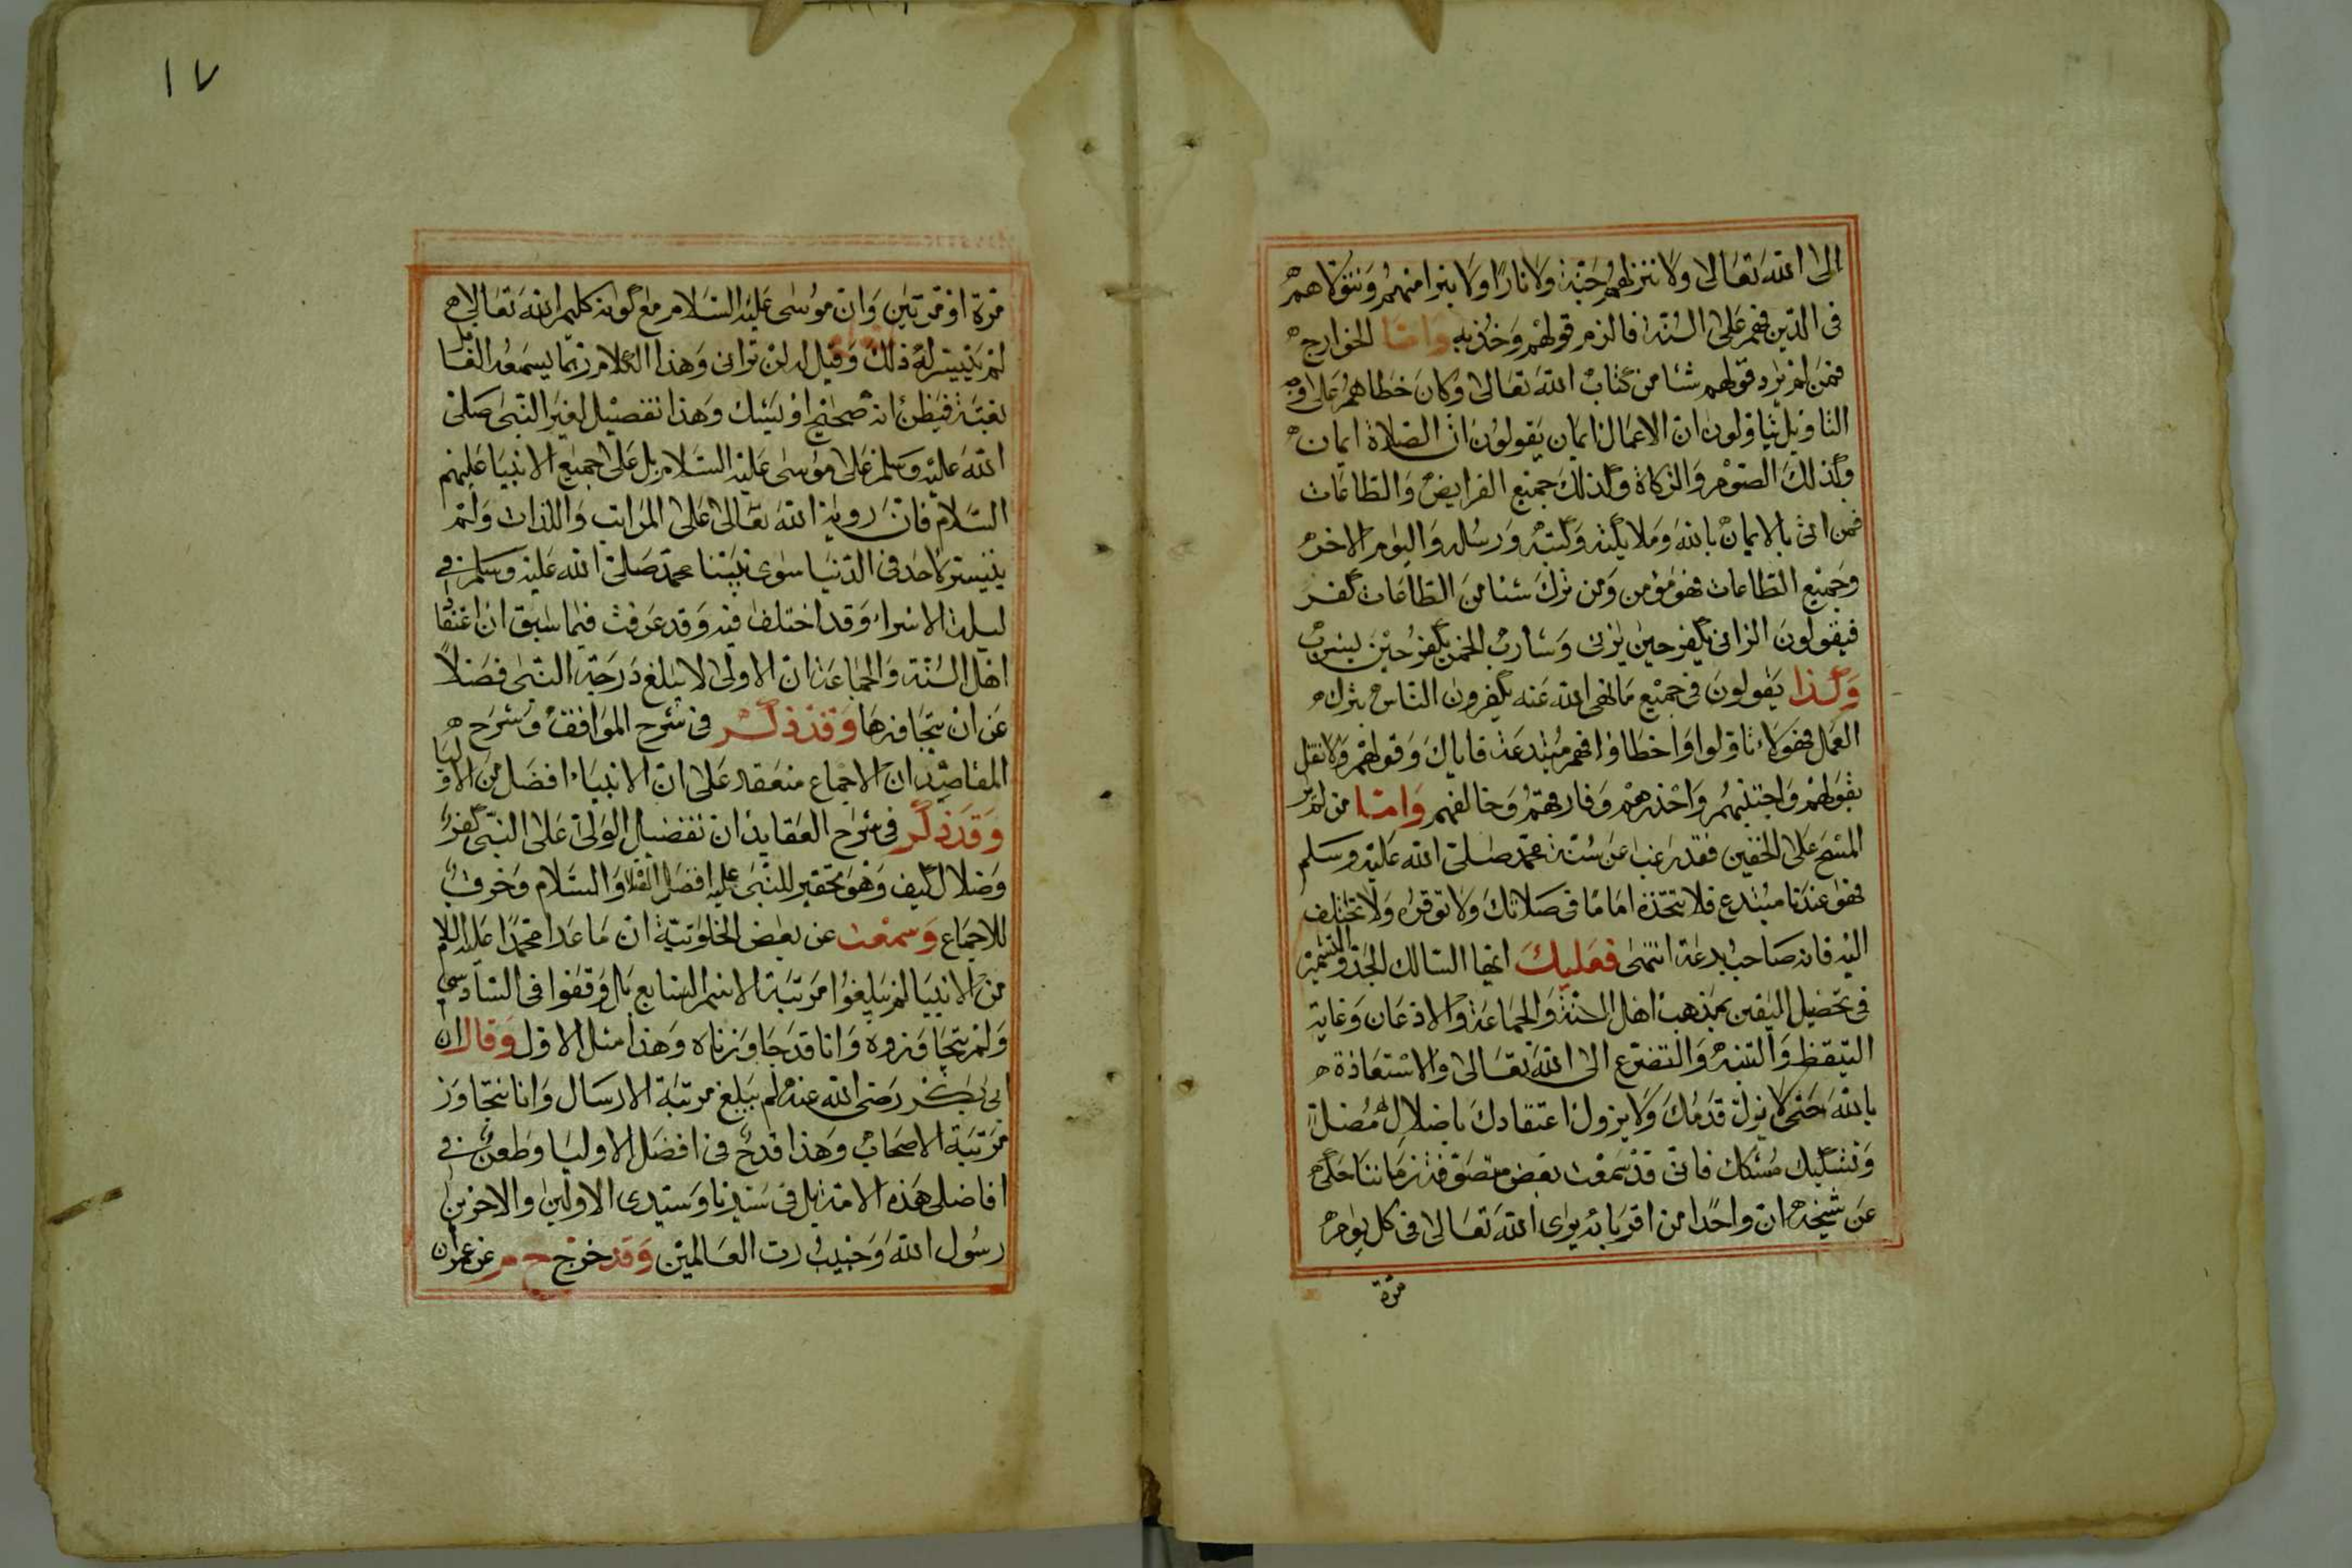 الى الله تعالى ولا ننزلهم جنة ولا نارا ولا نتبرا منهم ونتولاهم
فى الدين فهم على السنة فالزم قولهم وخذ به واما الخوارج
فمن لم يرد قولهم شئا من كتاب الله تعالى وكان خطاهم على وجه
التاويل يتاولون ان الاعمال ايمان يقولون ان الصلاة ايمان
وكذلك الصوم والزكاة وكذلك جميع الفرايض والطاعات
فمن اتى بالايمان بالله وملايكته وكتبه ورسله واليوم الاخر
وجميع الطاعات فهو مؤمن ومن ترك شئا من الطاعات كفر
فيقولون الزانى يكفر حين يزنى وشارب الخمر يكفر حين يشرب
وكذا يقولون فى جميع ما نهى الله عنه يكفرون الناس بترك
العمل فهولاء تاولوا واخطاوا فهم مبتدعة فاياك وقولهم ولا تقل
بقولهم واجتنبهم واحذرهم وفارقهم وخالفهم واما من لم ير
المسح على الخفين فقد رغب عن سنة محمد صلى الله عليه وسلم
فهو عندنا مبتدع فلا تتخذه اماما فى صلاتك ولا توقره ولا تختلف
اليه فانه صاحب بدعة انتهى فعليك ايها السالك الجد والتشمير
فى تحصيل اليقين بمذهب اهل السنة والجماعة والاذعان وغاية
التيقظ والتنبه والتضرع الى الله تعالى والاستعاذة
بالله حتى لا يزل قدمك ولا يزول اعتقادك باضلال مضل
وتشكيك مشكك فانى قد سمعت بعض متصوفة زماننا حكى
عن شيخه ان واحدا من اقربائه يرى الله تعالى فى كل يوم
مرة
١٧
مرة او مرتين وان موسى عليه السلام مع كونه كليم الله تعالى
لم يتيسر له ذلك وقيل له لن ترانى وهذا الكلام ربما يسمعه الغافل
بغتة فيظن انه صحيح او يشك وهذا تفضيل لغير النبى صلى
الله عليه وسلم على موسى عليه السلام بل على جميع الانبيا عليهم
السلام فان روية الله تعالى على المراتب واللذات ولم
يتيسر لاحد فى الدنيا سوى نبينا محمد صلى الله عليه وسلم فى
ليلة الاسراء وقد اختلف فيه وقد عرفت فيما سبق ان اعتقاد
اهل السنة والجماعة ان الاولى لا يبلغ درجة النبى فضلا
عن ان يتجاوزها وقد ذكر فى شرح المواقف وشرح
المقاصد ان الاجماع منعقد على ان الانبياء افضل من الاوليا
وقد ذكر فى شرح العقايد ان تفضيل الولى على النبى كفر
وضلال كيف وهو تحقير للنبى عليه افضل الصلاة والسلام وخرق
للاجماع وسمعت عن بعض الخلوتية ان ما عدا محمدا عليه السلام
من الانبيا لم يبلغوا مرتبة الاسم السابع بل وقفوا فى السادس
ولم يتجاوزوه وانا قد جاوزناه وهذا مثل الاول وقال ان
ابى بكر رضى الله عنه لم يبلغ مرتبة الارسال وانا نتجاوز
مرتبة الاصحاب وهذا قدح فى افضل الاوليا وطعن فى
افاضل هذه الامة بل فى سيدنا وسيدى الاولين والاخرين
رسول الله وحبيب رب العالمين وقد خرج ح م عن عمران